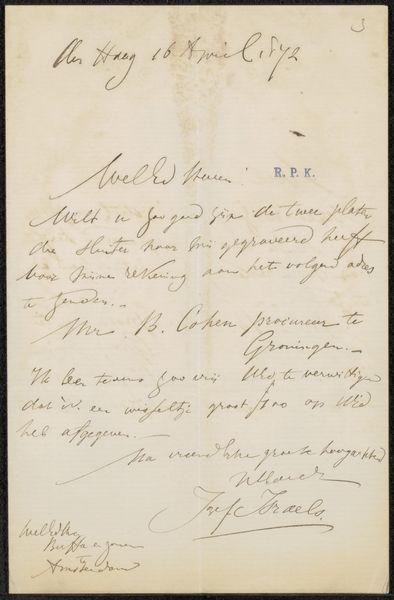 3
den Haag 16 April 1872
WelEd Heeren!
R. P. K.
Wilt u zoo goed zijn de twee platen
die Sluiter naar mij gegraveerd heeft
voor mijne rekening aan het volgend adres
te zenden. -
Mr B. Cohen procureur te
Groningen. -
Ik ben tevens zoo vrij UEd te verwittigen
dat ik een wisseltje groot op UEd
heb afgegeven. -
Na vriendelijke groete hoogachtend
Jozef Israels
Buffa en zonen
Amsterdam